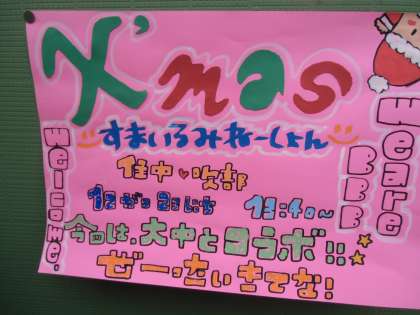 X'mas
すまいるみねーしょん
住中♥吹部
12がつ23にち 13:40~
今回は、大中とコラボ!!
ぜーったいきてな!
Welcome.
We are BBB